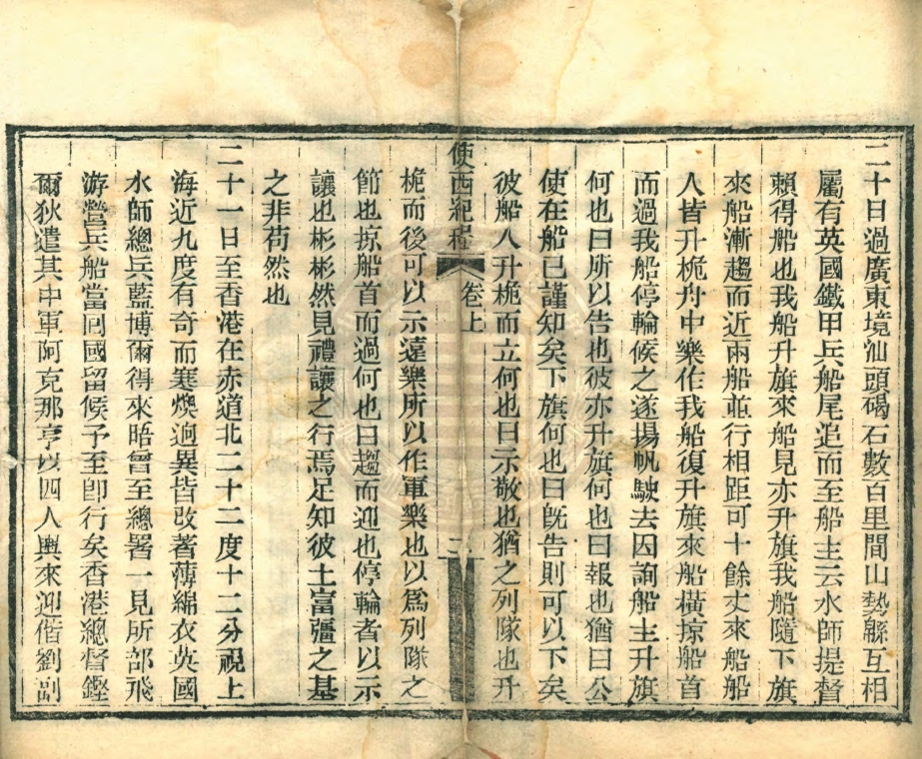 二十日過廣東境汕頭碣石數百里間山勢緜互相
屬有英國鐵甲兵船尾追而至船主云水師提督
賴得船也我船升旗來船見亦升旗我船隨下旗
來船漸趨而近兩船並行相距可十餘丈來船船
人皆升桅舟中樂作我船復升旗來船橫掠船首
而過我船停輪候之遂揚帆駛去因詢船主升旗
何也曰所以告也彼亦升旗何也曰報也猶曰公
使在船已謹知矣下旗何也曰旣告則可以下矣
彼船人升桅而立何也曰示敬也猶之列隊也升
使西紀程 卷上 二
桅而後可以示遠樂所以作軍樂也以爲列隊之
節也掠船首而過何也曰趨而迎也停輪者以示
讓也彬彬然見禮讓之行焉足知彼土富彊之基
之非苟然也
二十一日至香港在赤道北二十二度十二分視上
海近九度有奇而寒燠迥異皆改著薄綿衣英國
水師總兵藍博爾得來晤曾至總署一見所部飛
游營兵船當回國留候予至卽行矣香港總督鏗
爾狄遣其中軍阿克那亨以四人輿來迎偕劉副